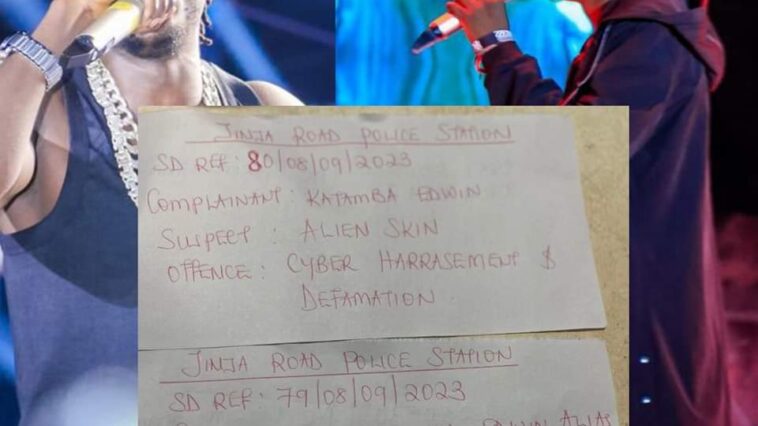 JINJA ROAD POLICE STATION
SD REF: 80/08/09/2023
COMPLAINANT: KATAMBA EDWIN
SUSPECT : ALIEN SKIN
OFFENCE: CYBER HARRASEMENT &
DEFAMATION
JINJA ROAD POLICE STATION
SD REF: 79/08/09/2023
ALIAS